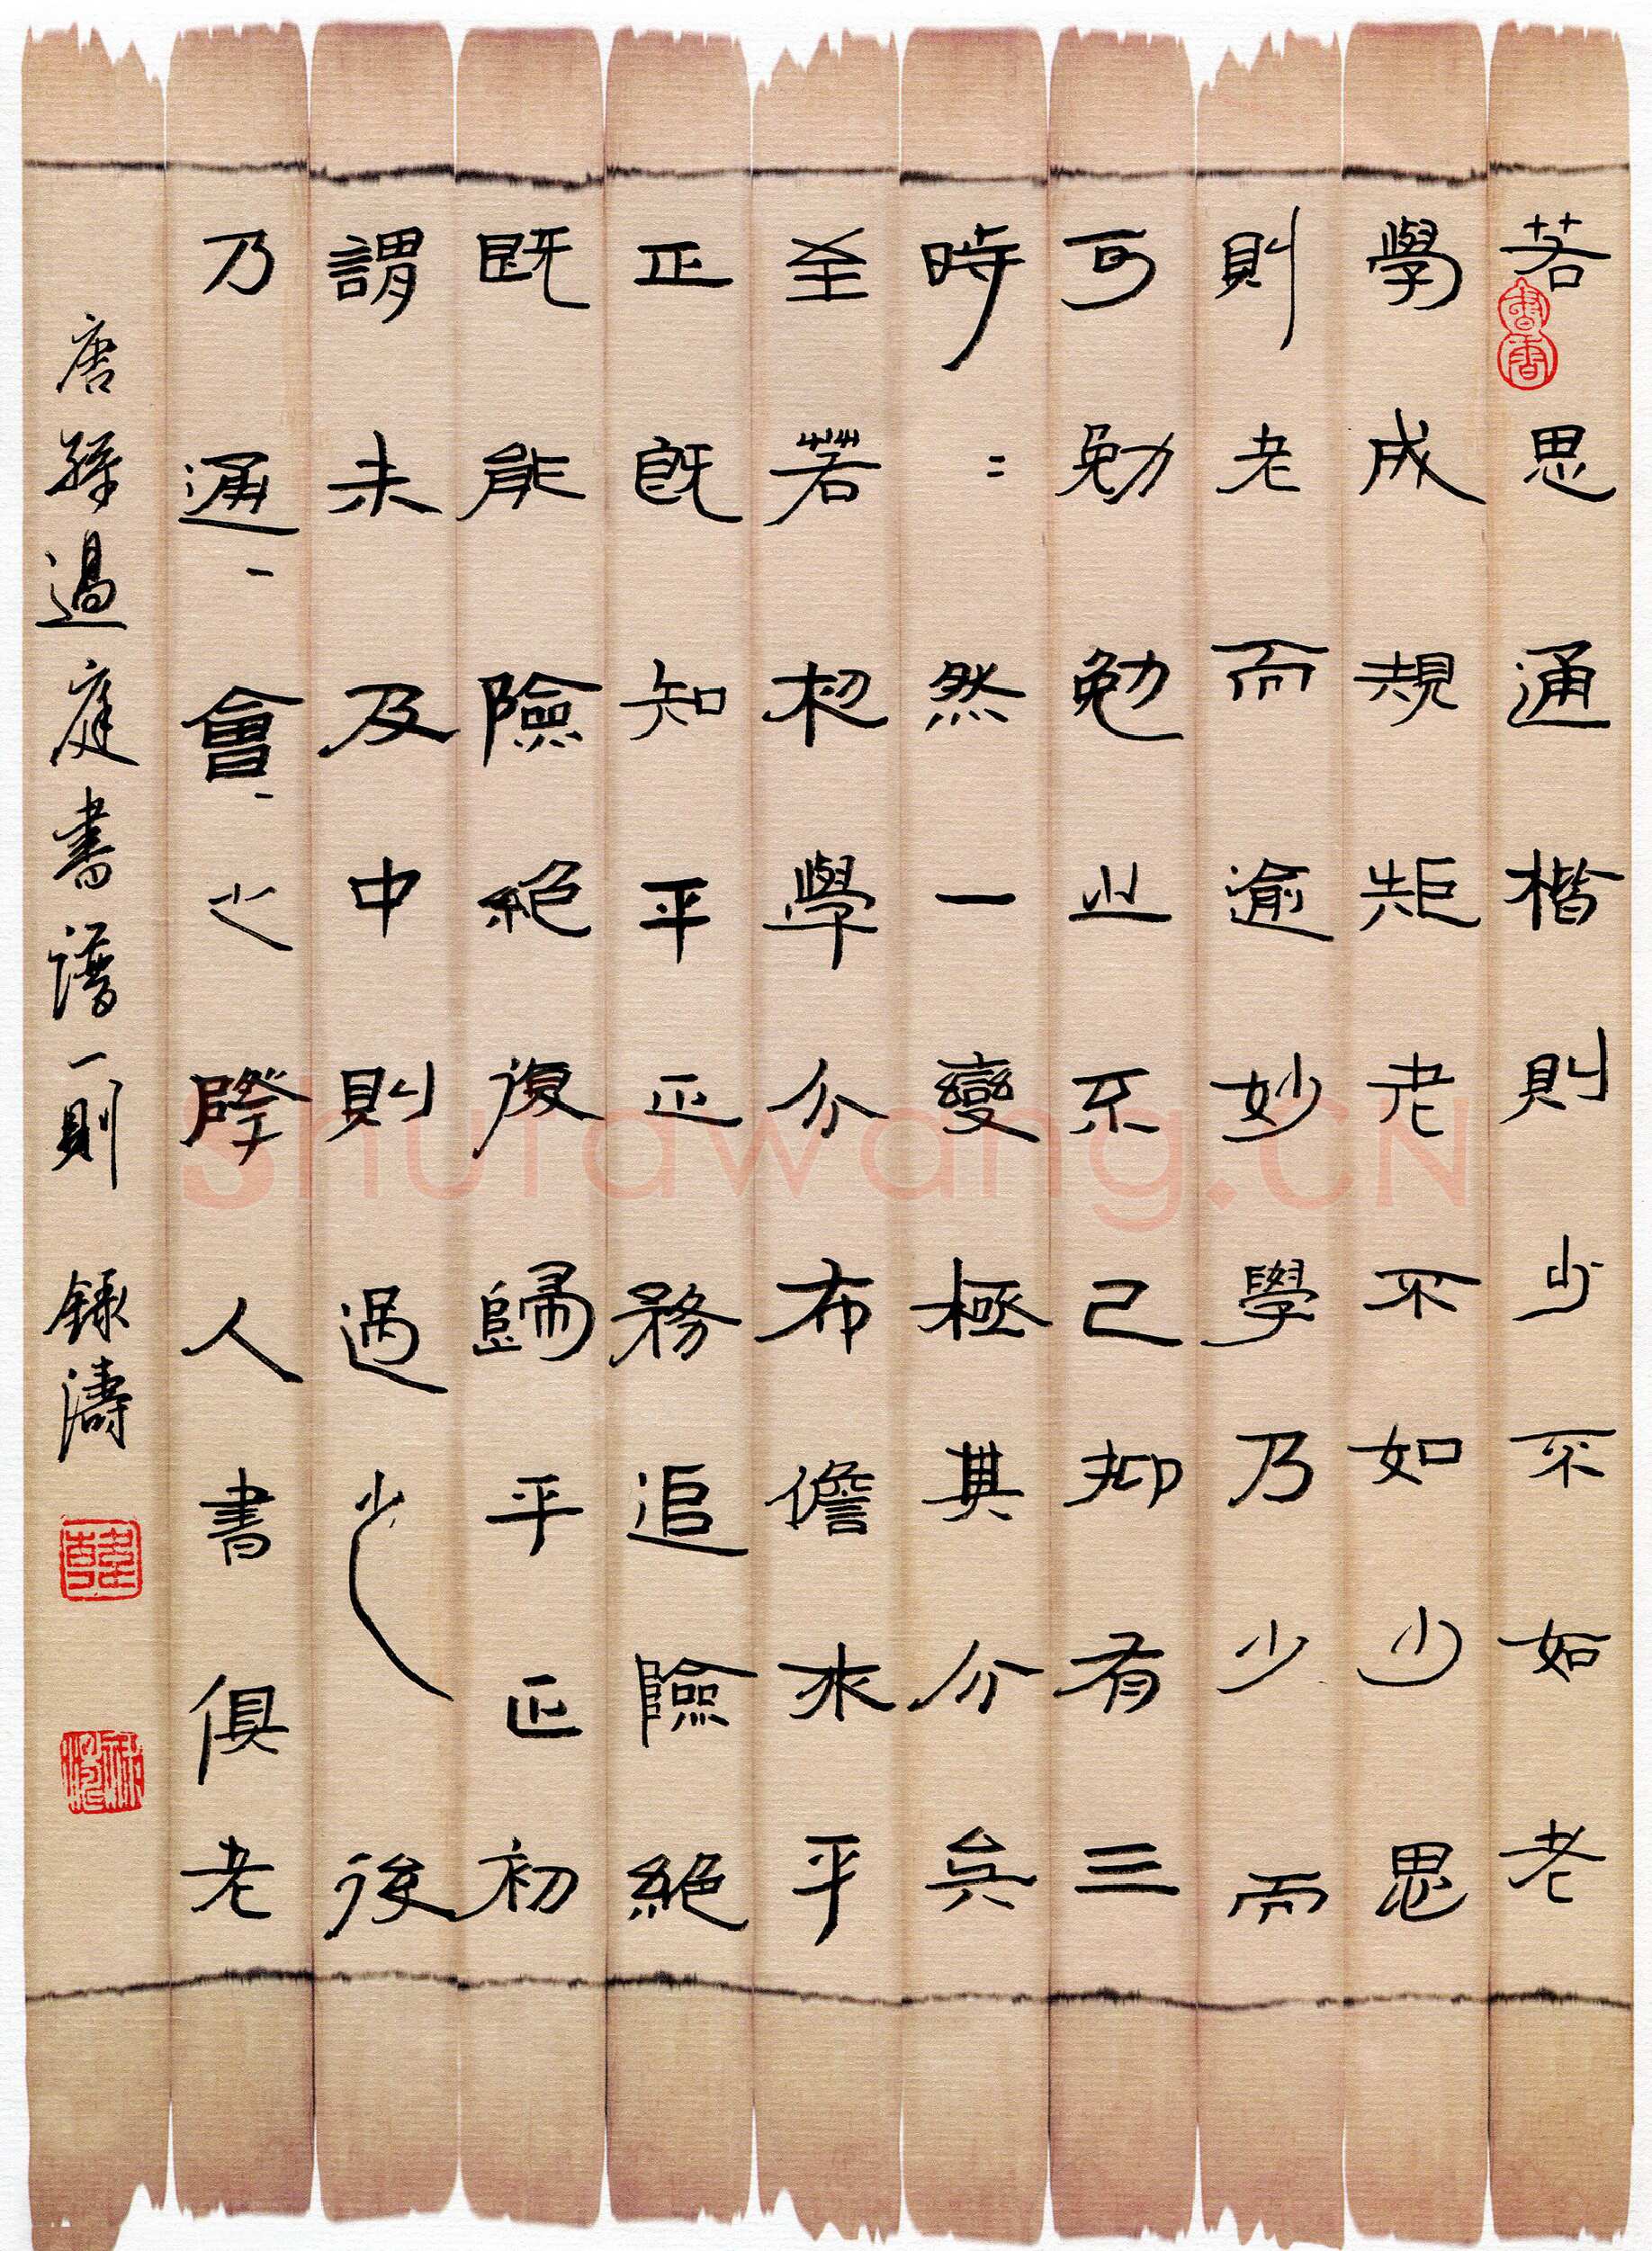 若思通楷則少不如老
學成規矩老不如少思
則老而逾妙學乃少而
可勉勉之不已抑有三
時=然一變極其分矣
至若初學分布儋求平
正既知平正務追險絕
既能險絕復歸平正初
謂未及中則過之後
乃通-會-之際人書俱老
唐孫過庭書譜一則 錄濤
書香
Shufawang.CN